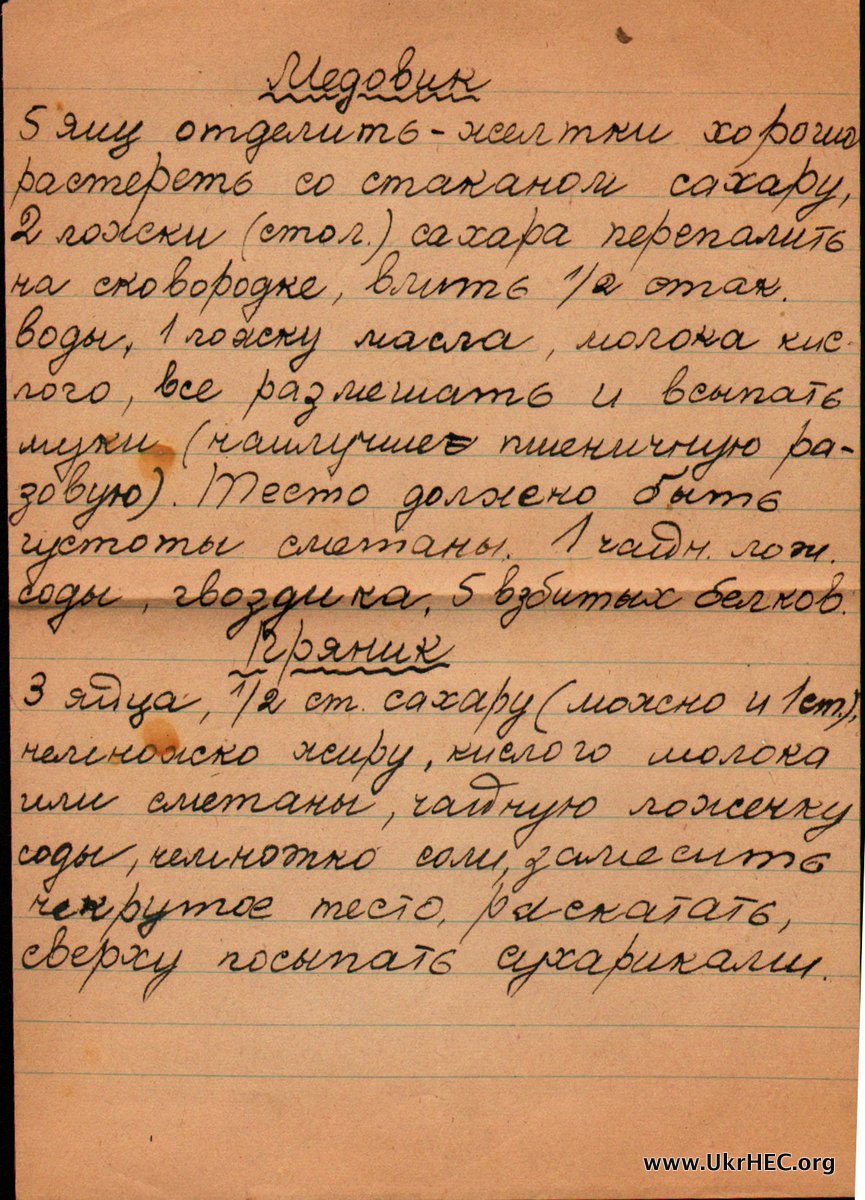 Медовик
5 яиц отделить - желтки хорошо
растереть со стаканом сахару,
2 ложки (стол.) сахара перепалить
на сковородке, влить 1/2 стак.
воды, 1 ложку масла, молока кис-
лого, все размешать и всыпать
муки (наилучше пшеничную ра-
зовую). Тесто должно быть
густоты сметаны. 1 чайн. лож.
соды, гвоздика, 5 взбитых белков.
Пряник
3 яйца, 1/2 ст. сахару (можно и 1 ст.),
немножко жиру, кислого молока
или сметаны, чайную ложечку
соды, немножко соли, замесить
некрутое тесто, раскатать,
сверху посыпать сухариками.
www.UkrHEC.org